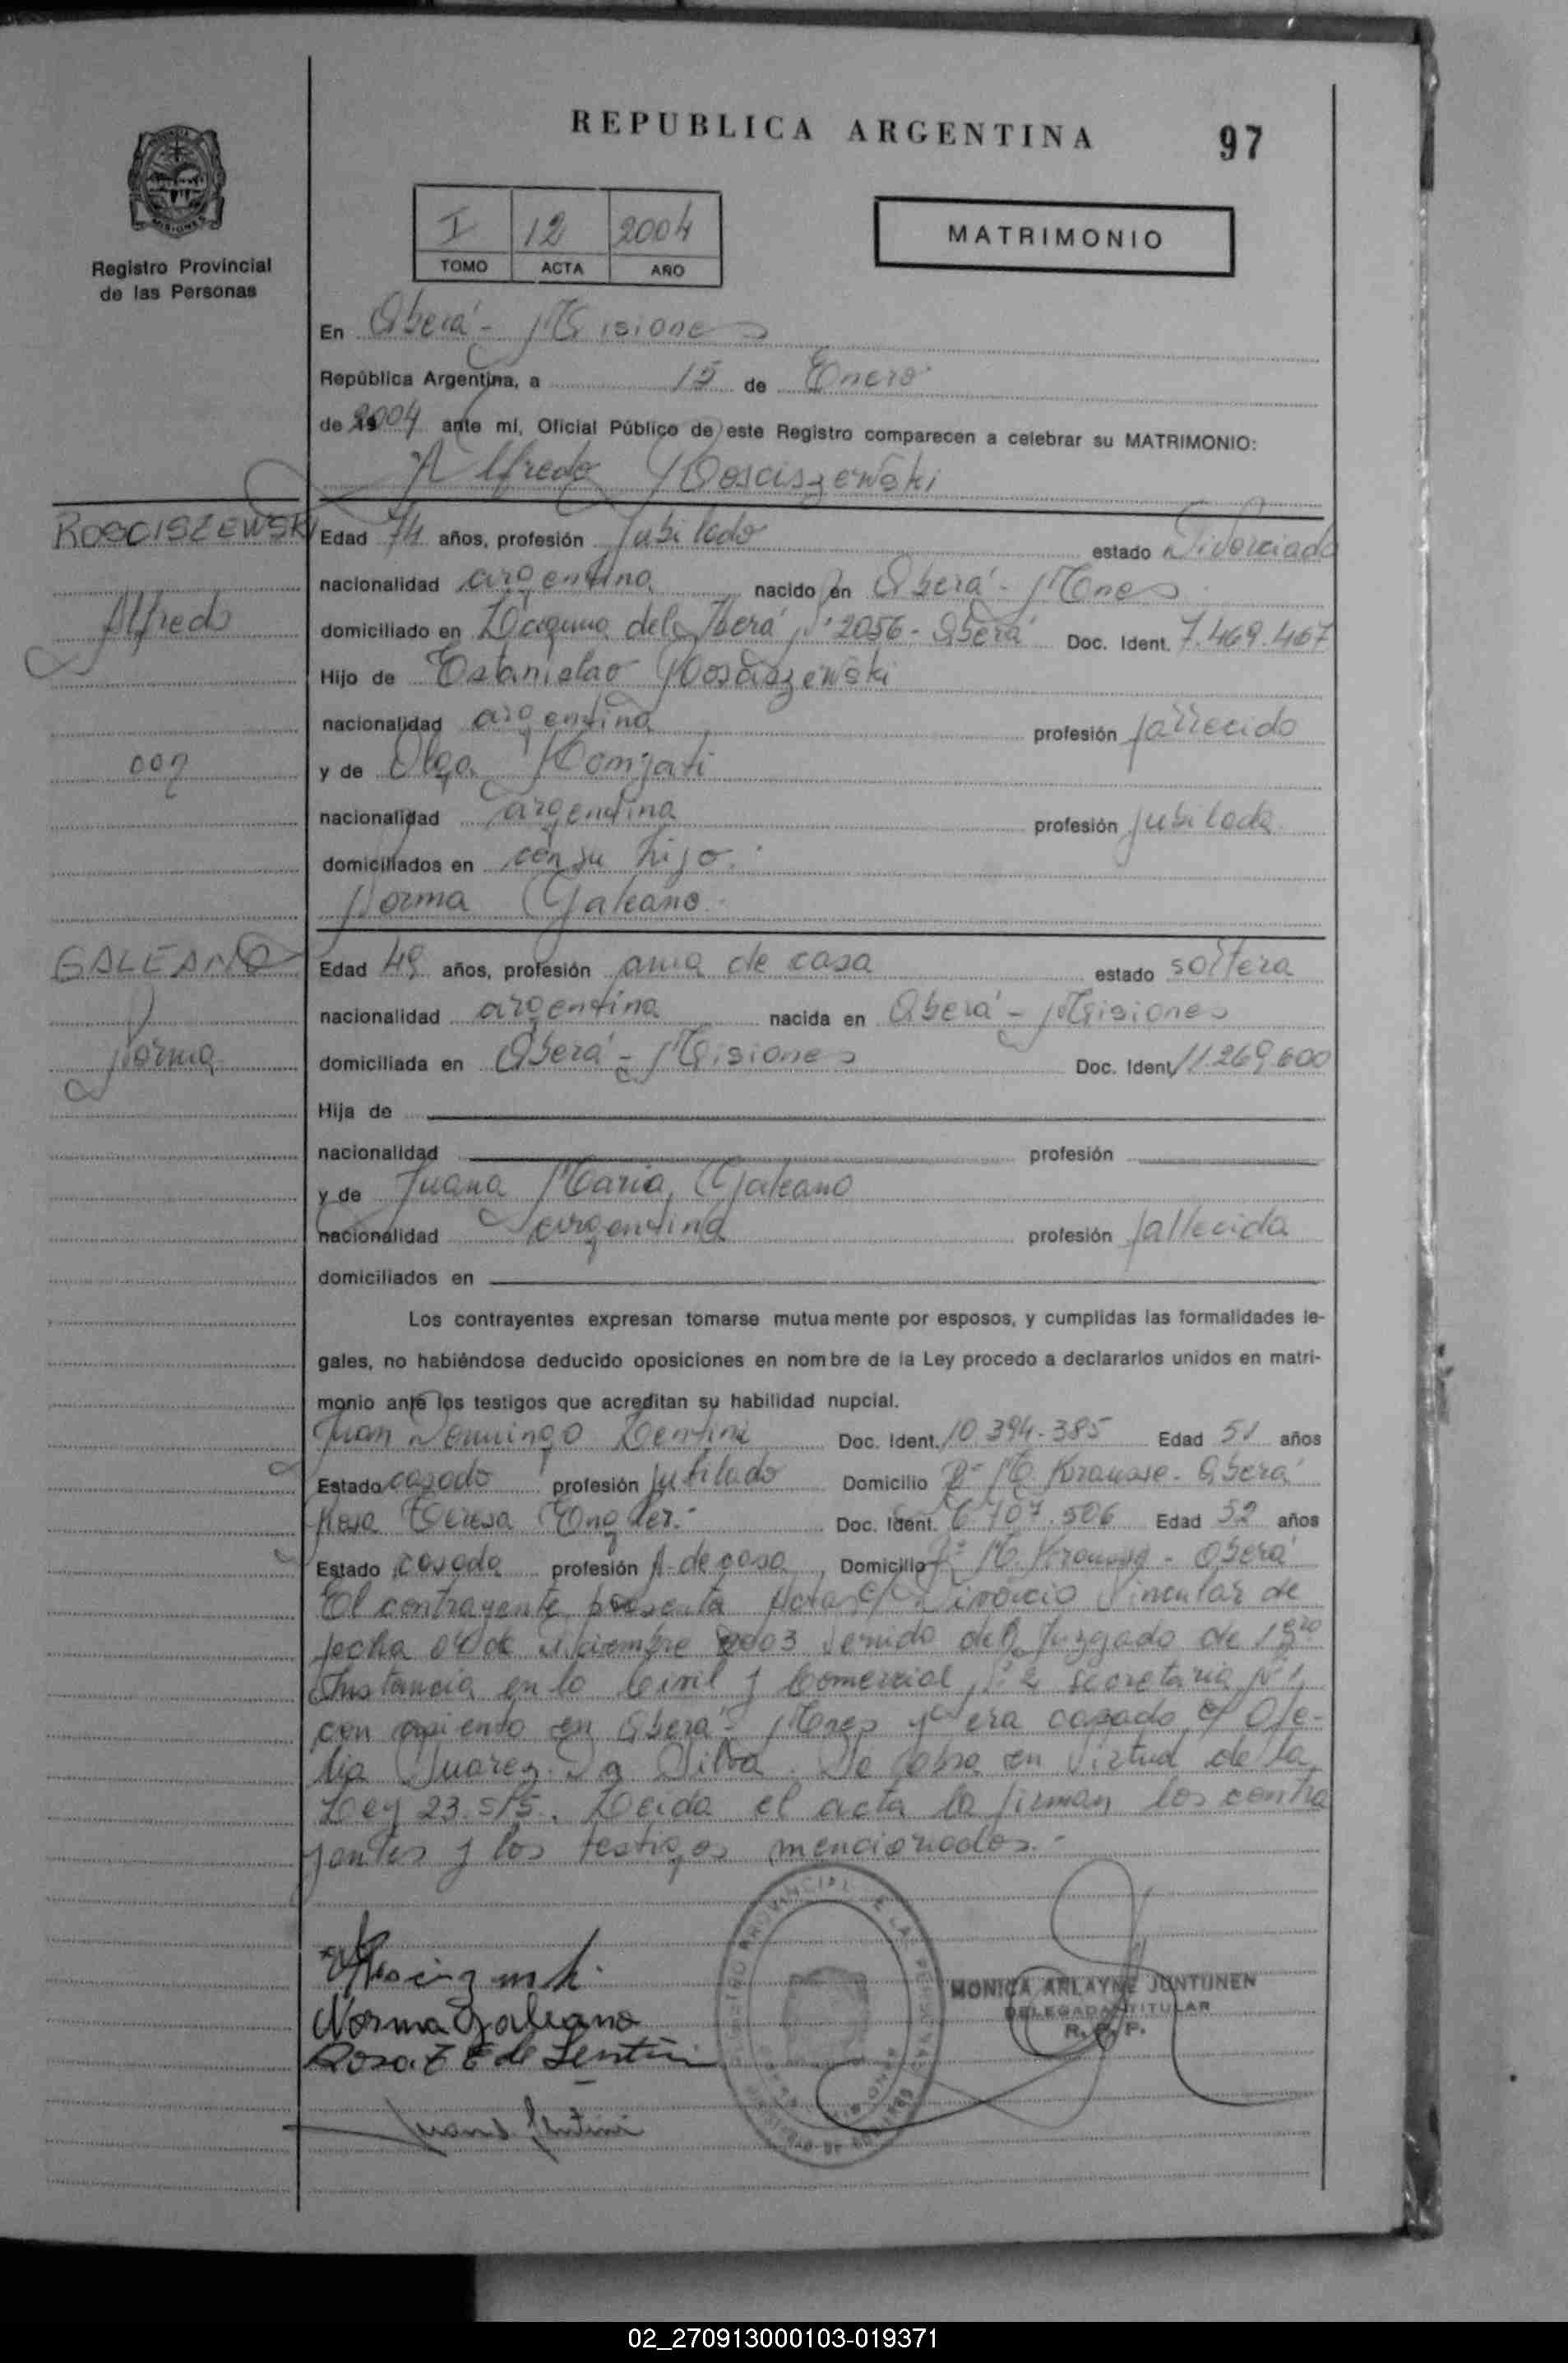 REPUBLICA ARGENTINA
97
Registro Provincial
de las Personas
I 12 2004
TOMO ACTA AÑO
MATRIMONIO
En Oberá - Misiones
República Argentina, a 15 de Enero
de 2004 ante mí, Oficial Público de este Registro comparecen a celebrar su MATRIMONIO:
Alfredo Rosciszewski
ROSCISZEWSKI
Alfredo
con
Edad 74 años, profesión Jubilado estado Divorciado
nacionalidad argentina nacido en Oberá - Mnes
domiciliado en Laguna del Iberá Nº 2056 - Oberá Doc. Ident. 7.469.467
Hijo de Estanislao Rosciszewski
nacionalidad argentina profesión fallecido
y de Olga
nacionalidad argentina profesión jubilada
domiciliados en con su hijo.
Norma Galeano
GALEANO
Norma
Edad 49 años, profesión ama de casa estado soltera
nacionalidad argentina nacida en Oberá - Misiones
domiciliada en Oberá - Misiones Doc. Ident. 11.269.600
Hija de
nacionalidad profesión
y de Juana Maria Galeano
nacionalidad argentina profesión fallecida
domiciliados en
Los contrayentes expresan tomarse mutuamente por esposos, y cumplidas las formalidades le-
gales, no habiéndose deducido oposiciones en nombre de la Ley procedo a declararlos unidos en matri-
monio ante los testigos que acreditan su habilidad nupcial.
Juan Domingo Lentini Doc. Ident. 10.394.385 Edad 51 años
Estado casado profesión jubilado Domicilio Bº M. Krausse - Oberá
Rosa Teresa Engler Doc. Ident. 6.707.506 Edad 52 años
Estado casada profesión A. de casa Domicilio Bº M. Krausse - Oberá
El contrayente presenta Acta c/ Divorcio Vincular de
fecha de 2003 venido del Juzgado de 1era
Instancia en lo Civil y Comercial Nº 2 secretaria Nº 1
con asiento en Oberá - Mnes era casado c/ Ofe-
lia Suarez Da Silva. Se labra en virtud de la
Ley 23.515. Leida el acta la firman los contra
yentes y los testigos mencionados.-
Norma Galeano
Rosa T E de Lentini
Juan D Lentini
MONICA ARLAYNE JUNTUNEN
DELEGADA TITULAR
R. P. P.
02_270913000103-019371